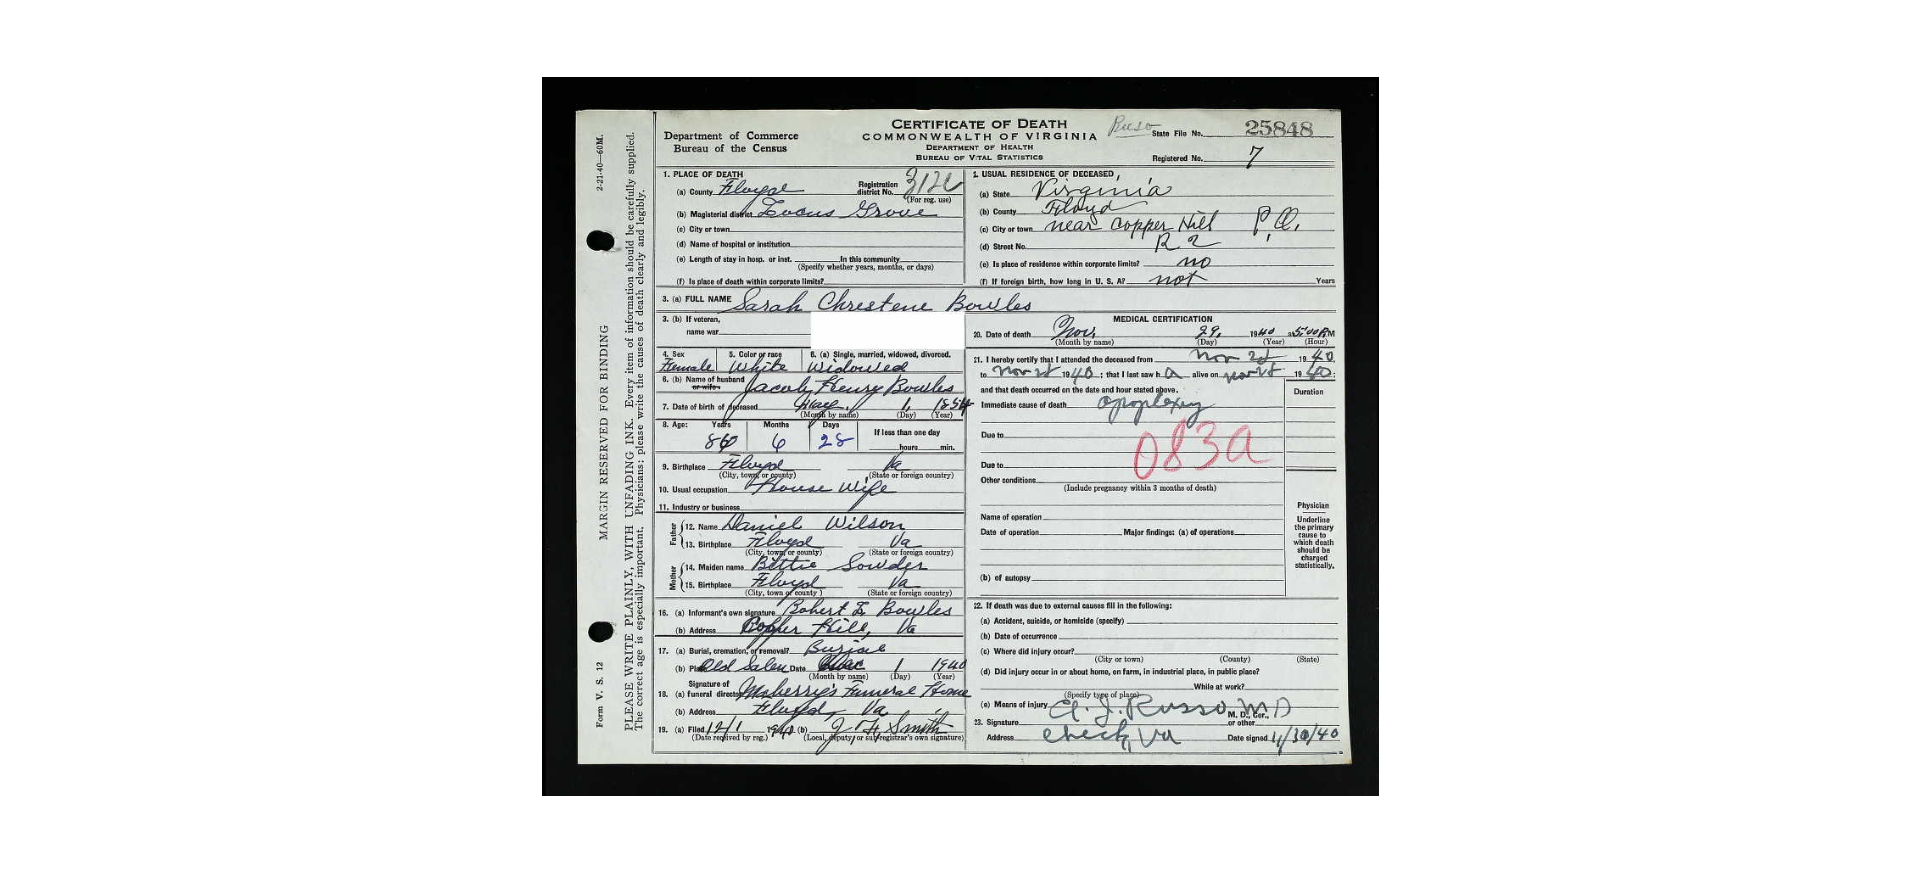 CERTIFICATE OF DEATH
COMMONWEALTH OF VIRGINIA
DEPARTMENT OF HEALTH
BUREAU OF VITAL STATISTICS
Department of Commerce
Bureau of the Census
State File No. 25848
Registered No. 7
2-21-40—60M.
MARGIN RESERVED FOR BINDING
Form V. S. 12
PLEASE WRITE PLAINLY, WITH UNFADING INK. Every item of information should be carefully supplied.
The correct age is especially important. Physicians: please write the causes of death clearly and legibly.
1. PLACE OF DEATH
(a) County Floyd Registration district No. (For reg. use)
(b) Magisterial district Locus Grove
(c) City or town
(d) Name of hospital or institution
(e) Length of stay in hosp. or inst. In this community
(Specify whether years, months, or days)
(f) Is place of death within corporate limits?
2. USUAL RESIDENCE OF DECEASED
(a) State Virginia
(b) County Floyd
(c) City or town near Copper Hill P.O.
(d) Street No. R 2
(e) Is place of residence within corporate limits? no
(f) If foreign birth, how long in U. S. A? not Years
3. (a) FULL NAME Sarah Chrestene Bowles
3. (b) If veteran,
name war
4. Sex Female
5. Color or race White
6. (a) Single, married, widowed, divorced. Widowed
6. (b) Name of husband or wife Jacob Henry Bowles
7. Date of birth of deceased May 1, 1854
(Month by name) (Day) (Year)
8. Age: Years Months Days If less than one day
86 6 28 hours min.
9. Birthplace Floyd Va
(City, town or county) (State or foreign country)
10. Usual occupation House Wife
11. Industry or business
Father
12. Name Daniel Wilson
13. Birthplace Floyd Va
(City, town or county) (State or foreign country)
Mother
14. Maiden name Bettie Sowder
15. Birthplace Floyd Va
(City, town or county) (State or foreign country)
16. (a) Informant's own signature Robert L Bowles
(b) Address Copper Hill, Va
17. (a) Burial, cremation, or removal? Burial
(b) Place Old Salem Date Dec 1 1940
(Month by name) (Day) (Year)
18. Signature of
(a) funeral director Maberry's Funeral Home
(b) Address Floyd, Va.
19. (a) Filed 12/1 1940 (b) J. H. Smith
(Date received by reg.) (Local, deputy or sub-registrar's own signature)
MEDICAL CERTIFICATION
20. Date of death Nov. 29, 1940 5:00 PM
(Month by name) (Day) (Year) (Hour)
21. I hereby certify that I attended the deceased from Nov 1940
to Nov 1940; that I last saw h alive on 1940;
and that death occurred on the date and hour stated above.
Duration
Immediate cause of death apoplexy
Due to
083a
Due to
Other conditions
(Include pregnancy within 3 months of death)
Name of operation
Date of operation Major findings: (a) of operations
(b) of autopsy
Physician
Underline
the primary
cause to
which death
should be
charged
statistically.
22. If death was due to external causes fill in the following:
(a) Accident, suicide, or homicide (specify)
(b) Date of occurrence
(c) Where did injury occur?
(City or town) (County) (State)
(d) Did injury occur in or about home, on farm, in industrial place, in public place?
While at work?
(Specify type of place)
(e) Means of injury
23. Signature Russo, M D M. D., Cor., or other
Address Check, Va Date signed 11/30/40